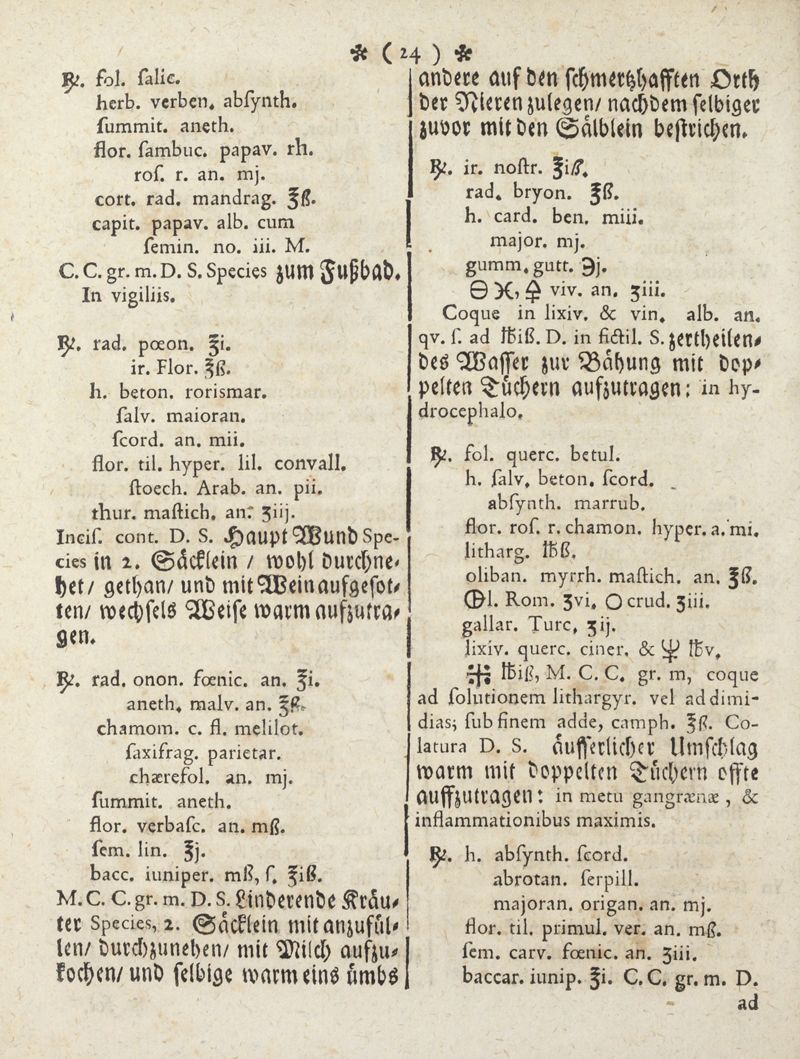 * ( 24 ) *
℞. fol. ſalic.
herb. verben. abſynth.
ſummit. aneth.
flor. ſambuc. papav. rh.
roſ. r. an. mj.
cort. rad. mandrag. ℥ß.
capit. papav. alb. cum
ſemin. no. iii. M.
C. C. gr. m. D. S. Species zum Fußbad.
In vigiliis.
℞. rad. pœon. ℥i.
ir. Flor. ℥ß.
h. beton. rorismar.
ſalv. maioran.
ſcord. an. mii.
flor. til. hyper. lil. convall.
ſtoech. Arab. an. pii.
thur. maſtich. an. ʒiij.
Inciſ. cont. D. S. Haupt Wund Spe-
cies in 2. Säcklein / wohl durchne⸗
het / gethan / und mit Wein aufgeſot⸗
ten / wechſels Weiſe warm aufzutra⸗
gen.
℞. rad. onon. fœnic. an. ℥i.
aneth. malv. an. ℥ß.
chamom. c. fl. melilot.
ſaxifrag. parietar.
chærefol. an. mj.
ſummit. aneth.
flor. verbaſc. an. mß.
ſem. lin. ℥j.
bacc. iuniper. mß, ſ. ℥iß.
M. C. C. gr. m. D. S. Linderende Kräu⸗
ter Species, 2. Säcklein mit anzufül⸗
len / durchzunehen / mit Milch aufzu⸗
kochen / und ſelbige warm eins ümbs
andere auf den ſchmertzhafften Orth
der Nieren zulegen / nachdem ſelbiger
zuvor mit den Sälblein beſtrichen.
℞. ir. noſtr. ℥iß.
rad. bryon. ℥ß.
h. card. ben. miii.
major. mj.
gumm. gutt. ℈j.
🜔 )(, 🜍 viv. an. ʒiii.
Coque in lixiv. & vin. alb. an.
qv. ſ. ad ℔iß. D. in fictil. S. zertheilen⸗
des Waſſer zur Bähung mit dop⸗
pelten Tüchern aufzutragen; in hy-
drocephalo.
℞. fol. querc. betul.
h. ſalv. beton. ſcord.
abſynth. marrub.
flor. roſ. r. chamom. hyper. a. mi.
litharg. ℔ß.
oliban. myrrh. maſtich. an. ℥ß.
l. Rom. ʒvi. crud. ʒiii.
gallar. Turc. ʒij.
lixiv. querc. ciner. & ℔v.
℔iß, M. C. C. gr. m, coque
ad ſolutionem lithargyr. vel ad dimi-
dias; ſub finem adde, camph. ℥ß. Co-
latura D. S. äuſſerlicher Umſchlag
warm mit doppelten Tüchern offte
auffzutragen: in metu gangrænæ, &
inflammationibus maximis.
℞. h. abſynth. ſcord.
abrotan. ſerpill.
majoran. origan. an. mj.
flor. til. primul. ver. an. mß.
ſem. carv. fœnic. an. ʒiii.
baccar. iunip. ℥i. C. C. gr. m. D.
ad